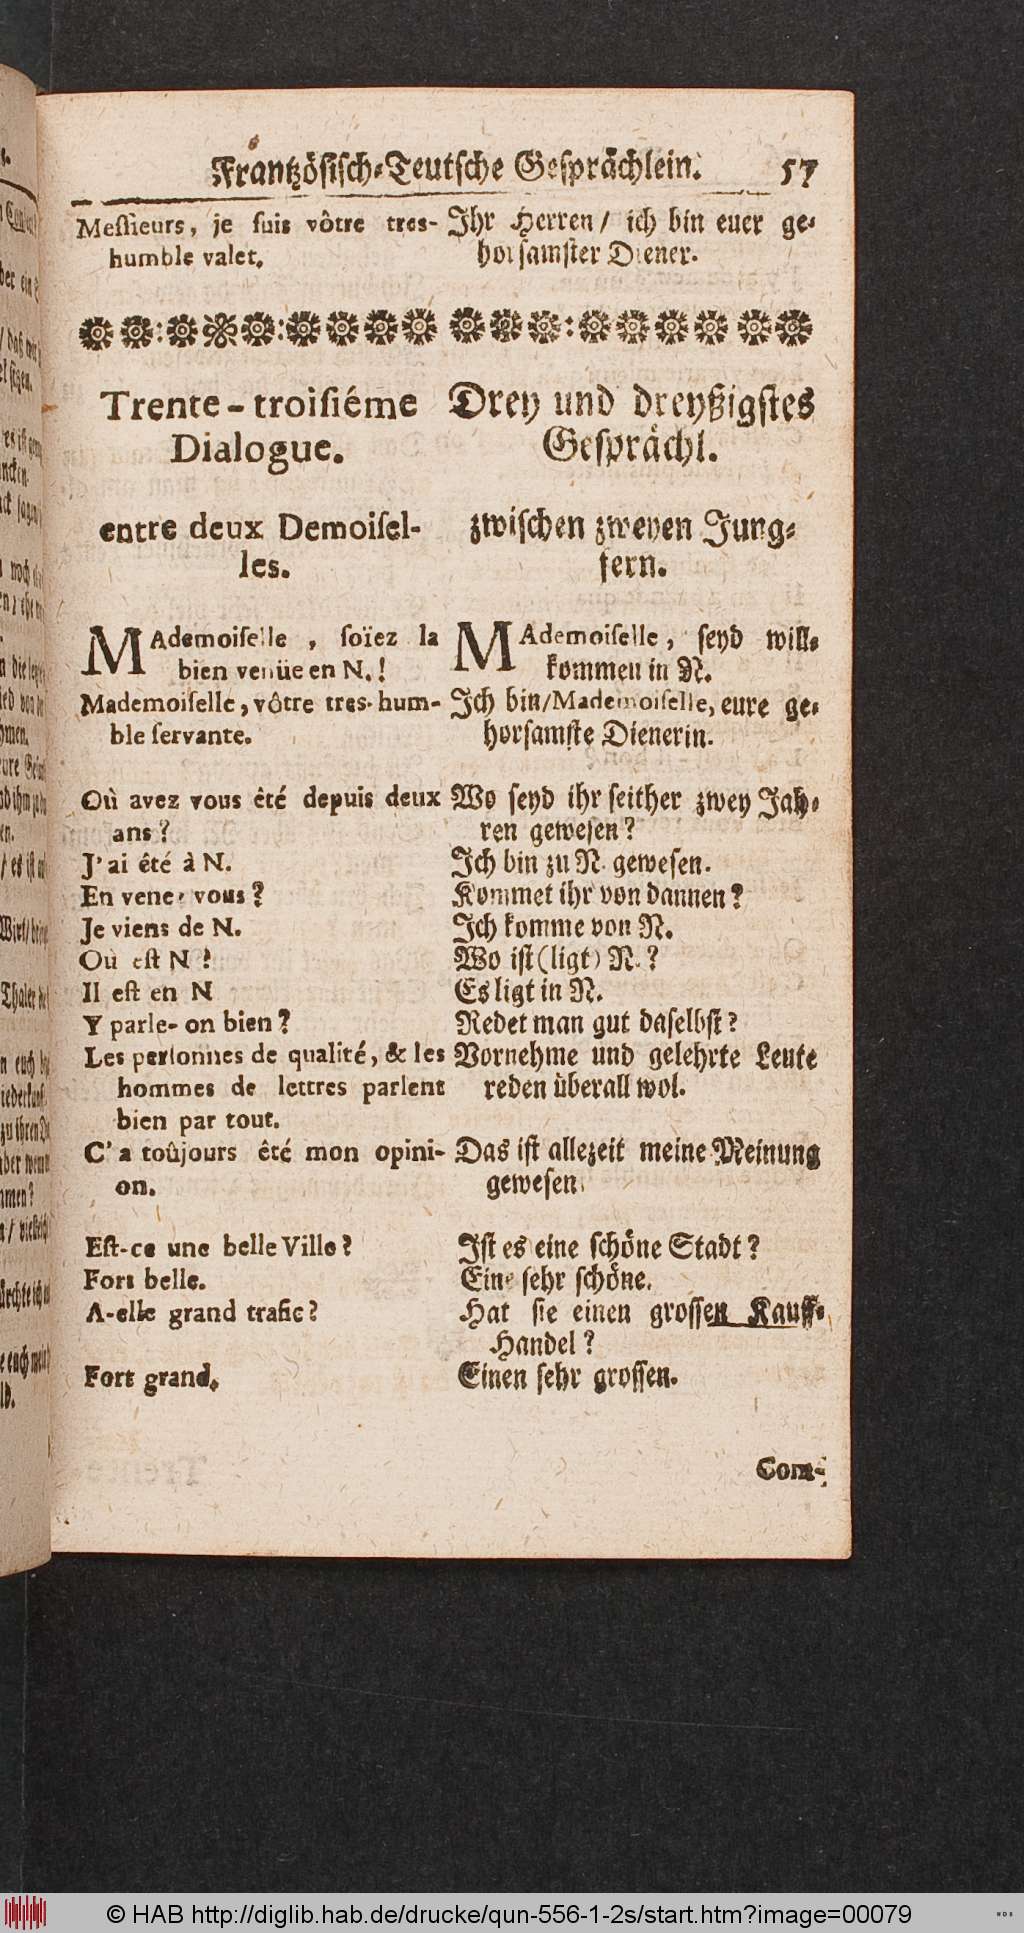 Frantzösisch-Teutsche Gesprächlein. 57
Meſſieurs, je ſuis vôtre tres-
humble valet.
Trente-troiſiéme
Dialogue.
entre deux Demoiſel-
les.
MAdemoiſelle , ſoïez la
bien venüe en N.!
Mademoiſelle, vôtre tres-hum-
ble ſervante.
Où avez vous êté depuis deux
ans?
J'ai êté à N.
En venez vous?
Je viens de N.
Où eſt N ?
Il eſt en N
Y parle-on bien?
Les perſonnes de qualité, & les
hommes de lettres parlent
bien par tout.
C'a toûjours êté mon opini-
on.
Eſt-ce une belle Ville?
Fort belle.
A-elle grand trafic?
Fort grand.
Ihr Herren/ ich bin euer ge-
horſamſter Diener.
Drey und dreyßigſtes
Geſprächl.
zwiſchen zweyen Jung-
fern.
MAdemoiſelle, ſeyd will-
kommen in N.
Ich bin/Mademoiſelle, eure ge-
horſamſte Dienerin.
Wo ſeyd ihr ſeither zwey Jah-
ren geweſen?
Ich bin zu N. geweſen.
Kommet ihr von dannen?
Ich komme von N.
Wo iſt (ligt) N.?
Es ligt in N.
Redet man gut daſelbſt?
Vornehme und gelehrte Leute
reden überall wol.
Das iſt allezeit meine Meinung
geweſen.
Iſt es eine ſchöne Stadt?
Eine ſehr ſchöne.
Hat ſie einen groſſen Kauff-
Handel?
Einen ſehr groſſen.
Com-
© HAB http://diglib.hab.de/drucke/qun-556-1-2s/start.htm?image=00079